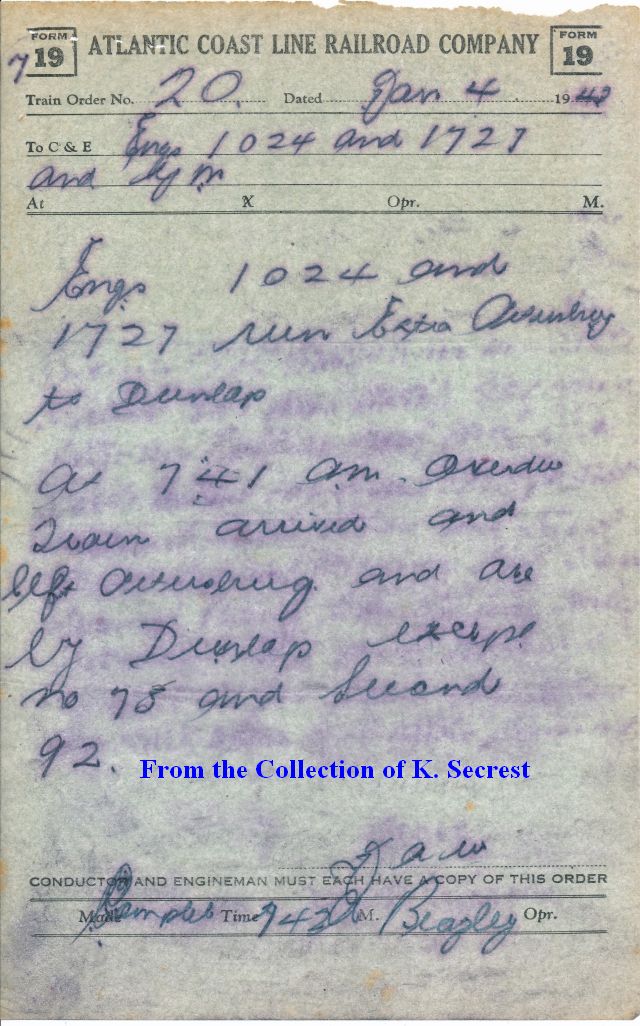 FORM 19 ATLANTIC COAST LINE RAILROAD COMPANY FORM 19
7
Train Order No. 20. Dated Jan 4 1943
To C & E Engs 1024 and 1727
and
At X Opr. M.
Engs 1024 and
1727 run Extra
to Dunlap
At 741 am. Overdue
Train arrived and
left and are
by Dunlap except
no 75 and Second
92.
From the Collection of K. Secrest
CONDUCTOR AND ENGINEMAN MUST EACH HAVE A COPY OF THIS ORDER
Made Complete Time 742 A M. Beazley Opr.